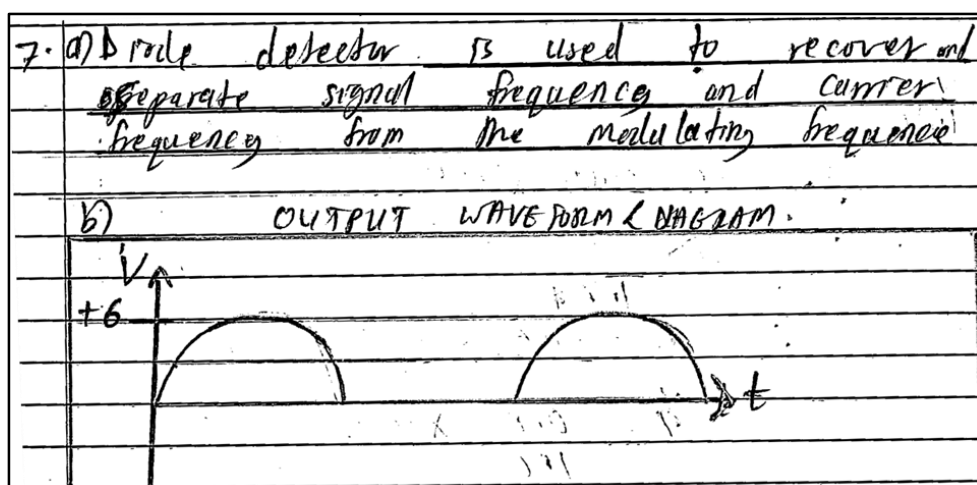 7. a) Diode detector is used to recover and
separate signal frequency and carrier
frequency from the modulating frequencie
b) OUTPUT WAVEFORM DIAGRAM.
V
+6
t